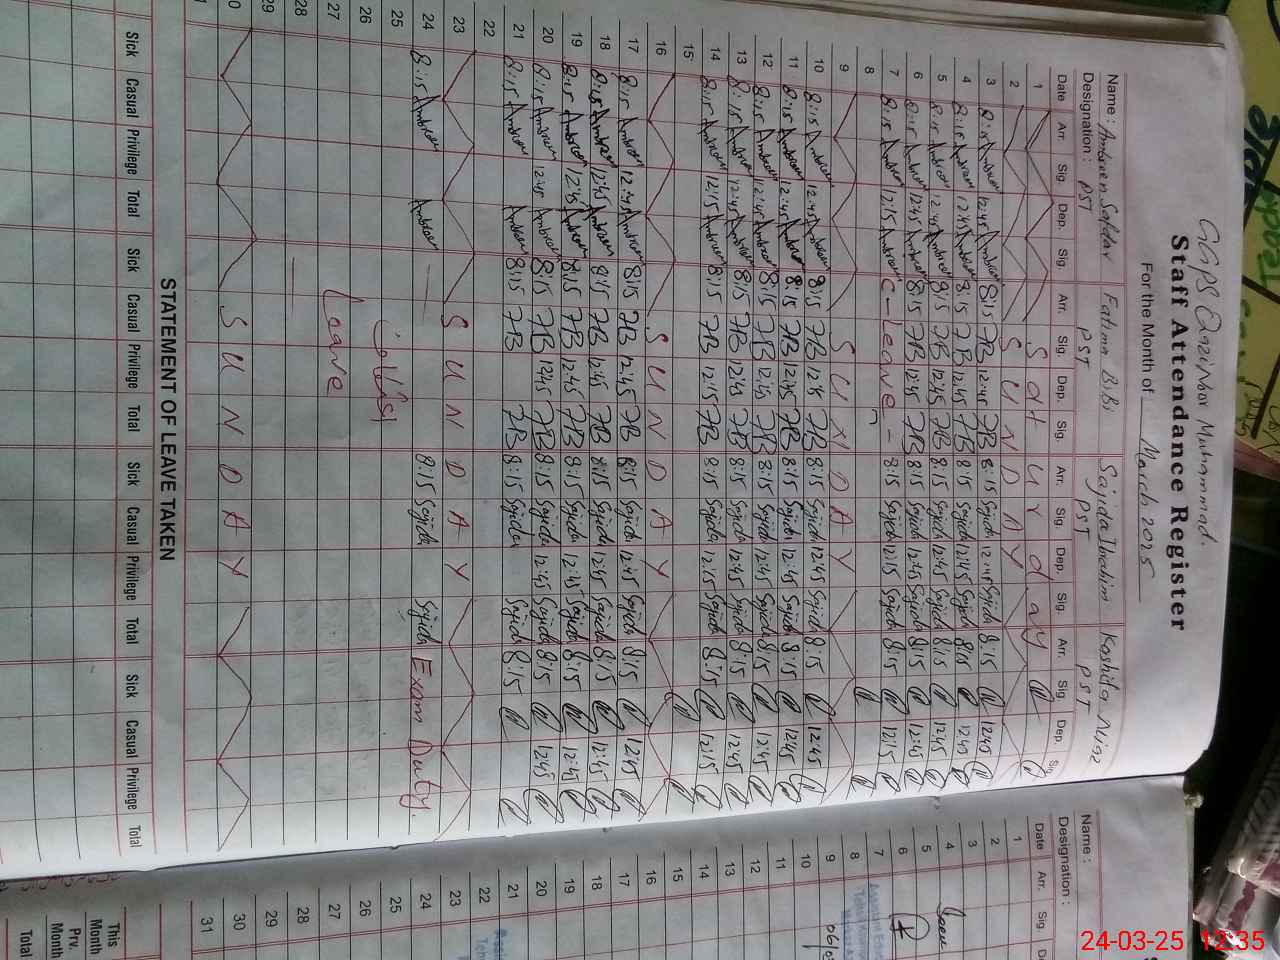 GGPS Qazipur Muhammad.
Staff Attendance Register
For the Month of March 2025
Name : Ambreen Safdar Fatima BiBi Sajida Ibrahim Koshifa Niaz
Designation : PST PST PST PST
Date Arr. Sig. Dep. Sig. Arr. Sig. Dep. Sig. Arr. Sig. Dep. Sig. Arr. Sig. Dep. Sig.
1 Saturday
2 SUNDAY
3 8:15 Ambreen 12:45 Ambreen 8:15 FB 12:45 FB 8:15 Sajida 12:45 Sajida 8:15 12:45
4 8:15 Ambreen 12:45 Ambreen 8:15 FB 12:45 FB 8:15 Sajida 12:45 Sajida 8:15 12:45
5 8:15 Ambreen 12:45 Ambreen 8:15 FB 12:45 FB 8:15 Sajida 12:45 Sajida 8:15 12:45
6 8:15 Ambreen 12:45 Ambreen 8:15 FB 12:45 FB 8:15 Sajida 12:45 Sajida 8:15 12:45
7 8:15 Ambreen 12:15 Ambreen C-Leave - 8:15 Sajida 12:15 Sajida 8:15 12:15
8
9 SUNDAY
10 8:15 Ambreen 12:45 Ambreen 8:15 FB 12:45 FB 8:15 Sajida 12:45 Sajida 8:15 12:45
11 8:15 Ambreen 12:45 Ambreen 8:15 FB 12:45 FB 8:15 Sajida 12:45 Sajida 8:15 12:45
12 8:15 Ambreen 12:45 Ambreen 8:15 FB 12:45 FB 8:15 Sajida 12:45 Sajida 8:15 12:45
13 8:15 Ambreen 12:45 Ambreen 8:15 FB 12:45 FB 8:15 Sajida 12:45 Sajida 8:15 12:45
14 8:15 Ambreen 12:15 Ambreen 8:15 FB 12:15 FB 8:15 Sajida 12:15 Sajida 8:15 12:15
15
16 SUNDAY
17 8:15 Ambreen 12:45 Ambreen 8:15 FB 12:45 FB 8:15 Sajida 12:45 Sajida 8:15 12:45
18 8:15 Ambreen 12:45 Ambreen 8:15 FB 12:45 FB 8:15 Sajida 12:45 Sajida 8:15 12:45
19 8:15 Ambreen 12:45 Ambreen 8:15 FB 12:45 FB 8:15 Sajida 12:45 Sajida 8:15 12:45
20 8:15 Ambreen 12:45 Ambreen 8:15 FB 12:45 FB 8:15 Sajida 12:45 Sajida 8:15 12:45
21 8:15 Ambreen Ambreen 8:15 FB FB 8:15 Sajida Sajida 8:15
22
23 SUNDAY
24 8:15 Ambreen Ambreen — 8:15 Sajida Sajida Exam Duty.
25
26
27 Leave
28
29
30 SUNDAY
STATEMENT OF LEAVE TAKEN
Sick Casual Privilege Total Sick Casual Privilege Total Sick Casual Privilege Total Sick Casual Privilege Total
Name :
Designation :
Date Arr. Sig.
1
2
3
4
5
6
7
8
9
10
11
12
13
14
15
16
17
18
19
20
21
22
23
24
25
26
27
28
29
30
31
This Month
Prv. Month
Total
24-03-25 12:35